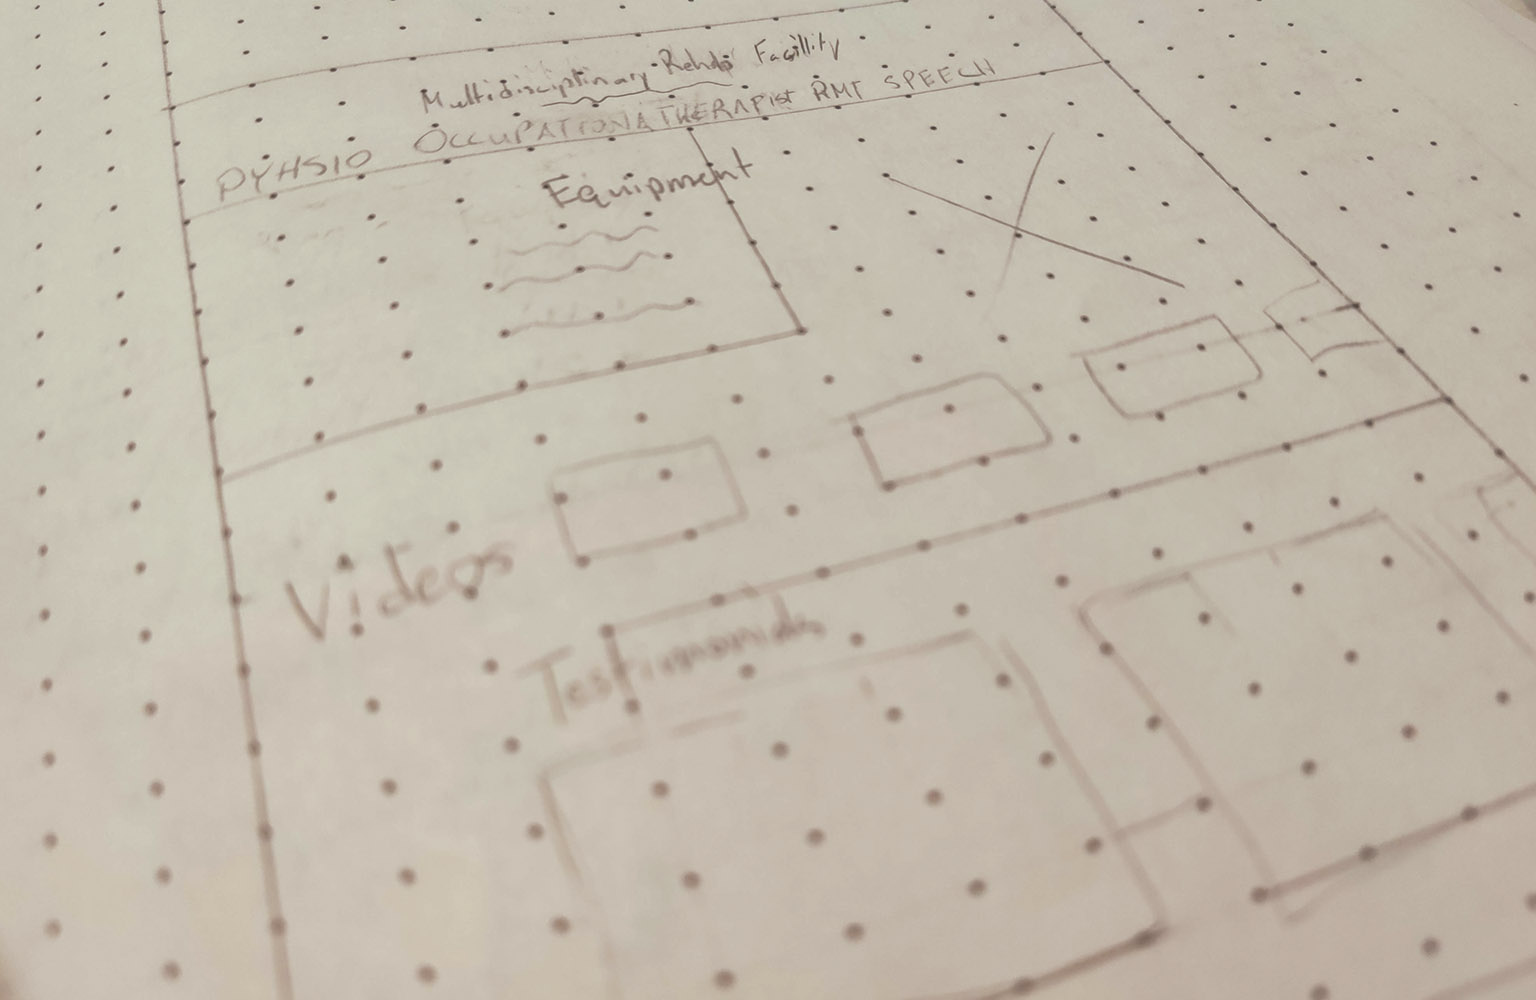 Multidisciplinary Rehab Facillity
PYHSIO OCCUPATIONA THERAPist RMT SPEECH
Equipment
Videos
Testimonials